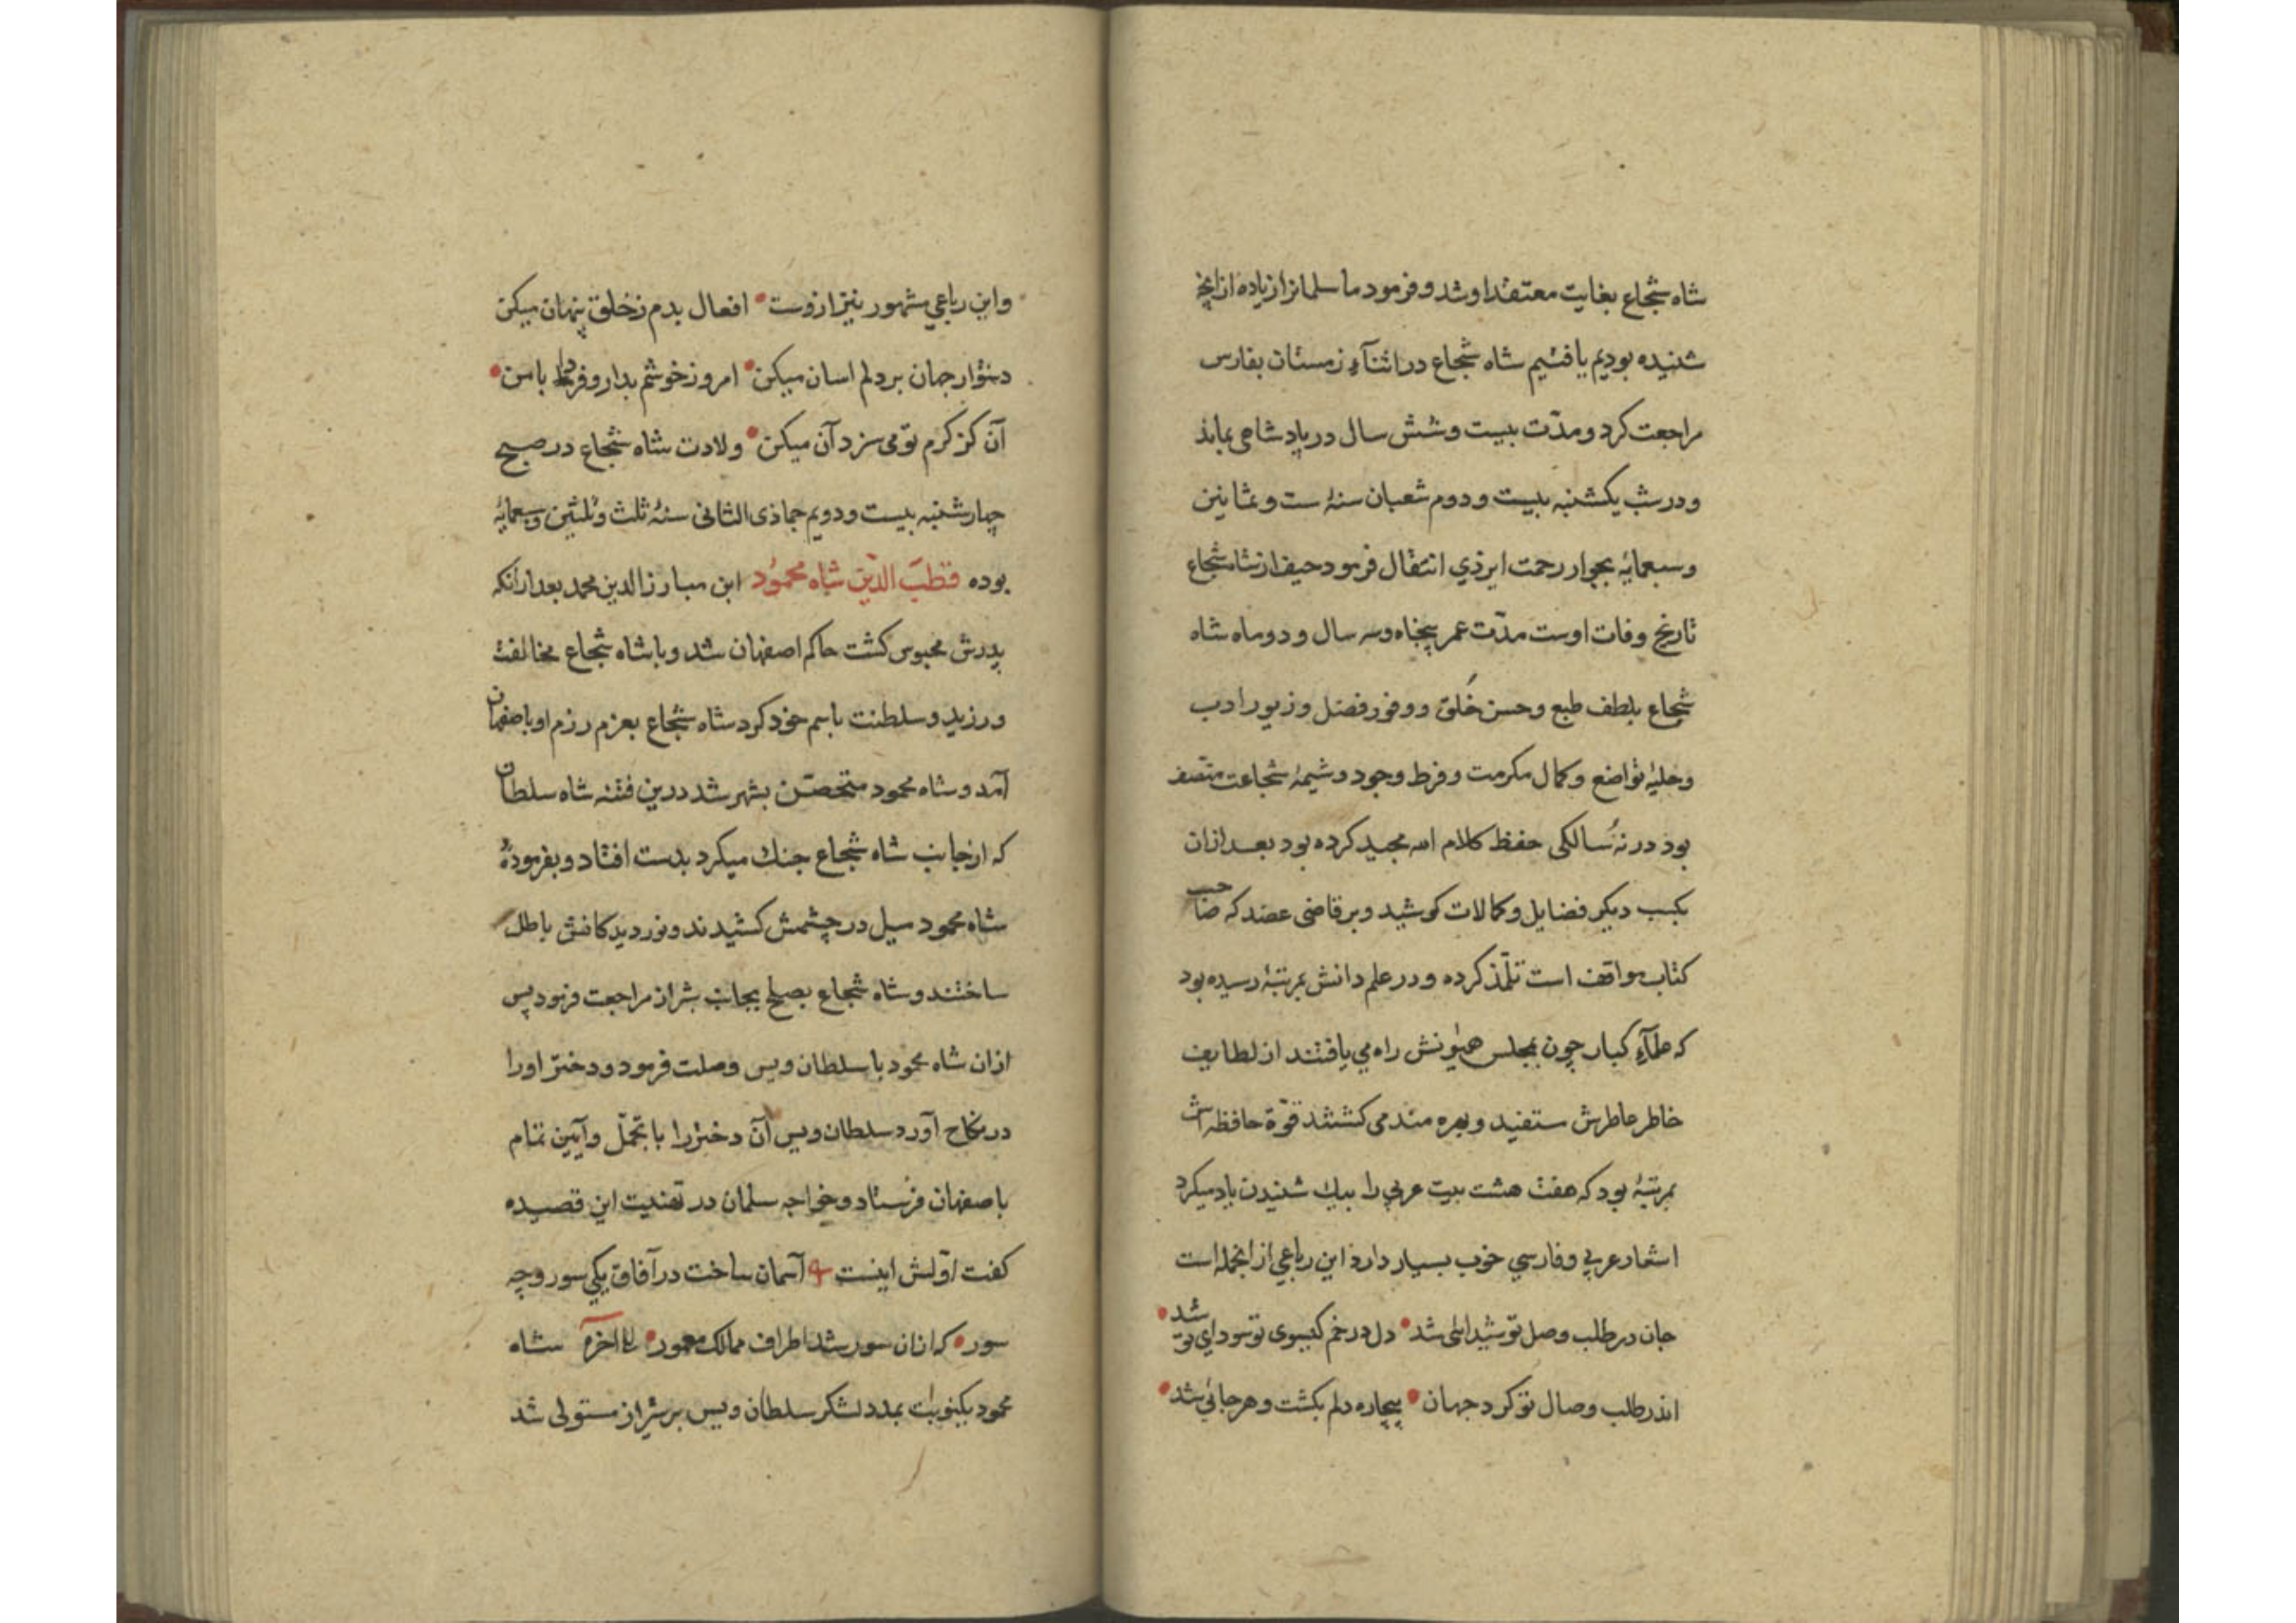 شاه شجاع بغایت معتقد او شد و فرمود ما سلمانرا زیاده از آنچه
شنیده بودیم یافتیم شاه شجاع در اثنآء زمستان بفارس
مراجعت کرد و مدّت بیست و شش سال در پادشاهی بماند
و در شب یکشنبه بیست و دوم شعبان سنهٔ ست و ثمانین
و سبعمایه بجوار رحمت ایزدی انتقال فرمود حیف از شاه شجاع
تاریخ وفات اوست مدّت عمر پنجاه و سه سال و دو ماه شاه
شجاع بلطف طبع و حسن خُلق و وفور فضل و زیور ادب
و حلیهٔ تواضع و کمال مکرمت و فرط وجود و شیمهٔ شجاعت متصف
بود در نه سالکی حفظ کلام الله مجید کرده بود بعد از ان
بکسب دیکر فضایل و کمالات کوشید و بر قاضی عضد که صاحب
کتاب مواقف است تلمّذ کرده و در علم دانش بمرتبهٔ رسیده بود
که علمآء کبار چون بمجلس همیونش راه می یافتند از لطایف
خاطر عاطرش مستفید و بهره مند می کشتند قوّة حافظه اش
بمرتبهٔ بود که هفت هشت بیت عربی را بیك شنیدن یاد میکرد
اشعار عربی و فارسی خوب بسیار دارد این رباعی از انجمله است
جان در طلب وصل تو شیدائی شد • دل در خم کیسوی تو سودای شد •
اندر طلب وصال تو کرد جهان • بیچاره دلم بکشت و هرجائی شد •
و این رباعی مشهور نیز ازوست • افعال بدم ز خلق پنهان میکن
دشوار جهان بر دلم اسان میکن • امروز خوشم بدار و فردا با من •
آن کز کرم تو می سزد آن میکن • ولادت شاه شجاع در صبح
چهارشنبه بیست و دویم جماذی الثانی سنهٔ ثلث و ثلثین و سبعمایهٔ
بوده قطب الدّین شاه محمود ابن مبارزالدین محمد بعد از آنکه
پدرش محبوس کشت حاکم اصفهان شد و با شاه شجاع مخالفت
ورزید و سلطنت باسم خود کرد شاه شجاع بعزم رزم او باصفهان
آمد و شاه محمود متحصّن بشهر شد درین فتنه شاه سلطان
که از جانب شاه شجاع جنك میکرد بدست افتاد و بفرمودهٔ
شاه محمود میل در چشمش کشیدند و نور دیدکانش باطل
ساختند و شاه شجاع بصلح بجانب شیراز مراجعت فرمود پس
ازان شاه محمود با سلطان ویس وصلت فرمود و دختر اورا
در نکاح آورد سلطان ویس آن دختر را با تجمّل و آیین تمام
باصفهان فرستاد و خواجه سلمان در تهنیت این قصیده
کفت اوّلش اینست آسمان ساخت در آفاق یکی سور و چه
سور • که ازان سور شد اطراف ممالک معمور • الی آخره شاه
محمود یکنوبت بمدد لشکر سلطان ویس بر شیراز مستولی شد